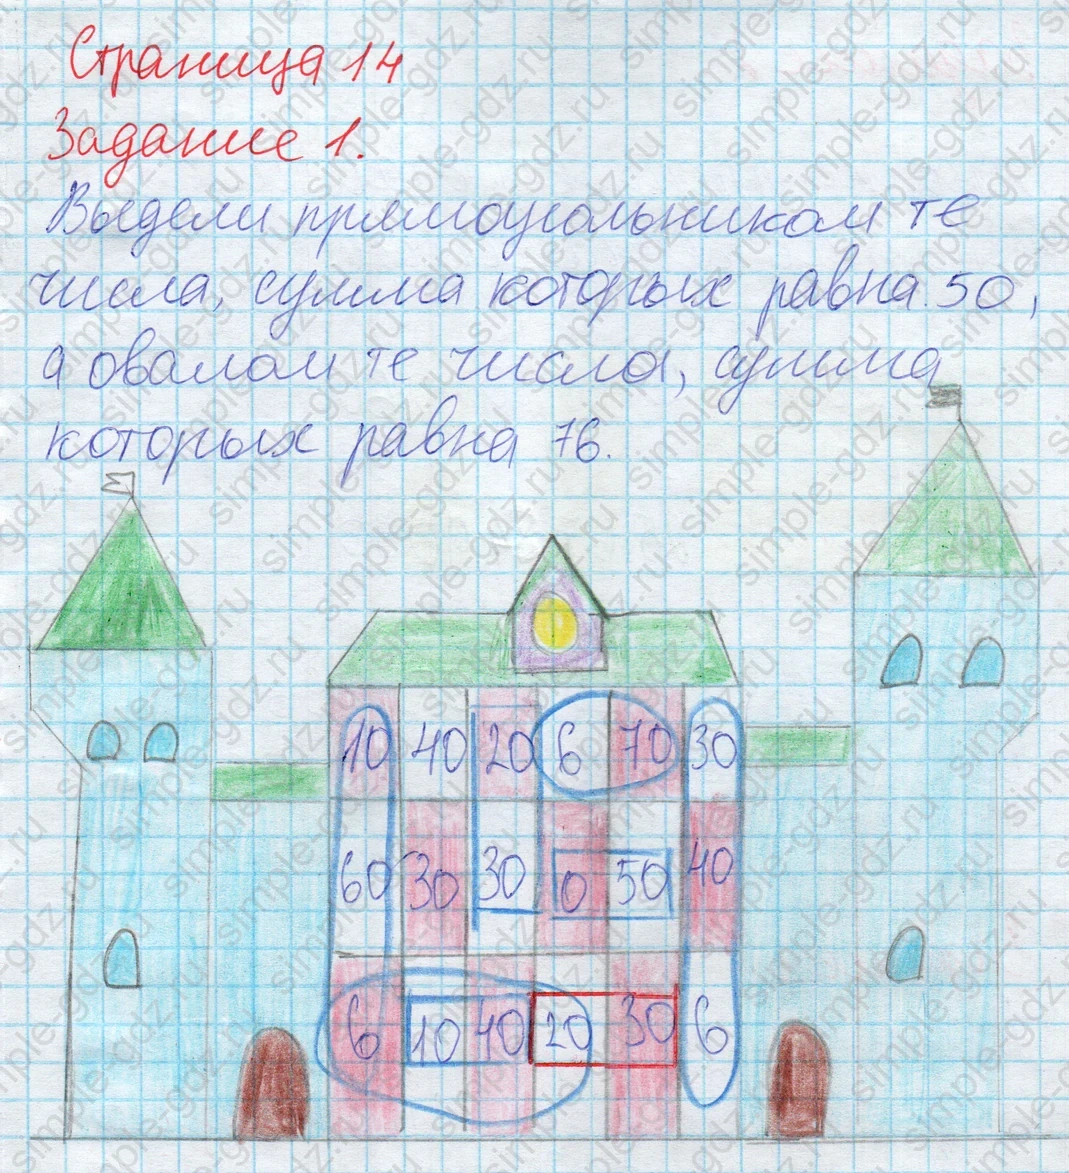 Страница 14
Задание 1.
Выдели прямоугольником те
числа, сумма которых равна 50,
а овалом те числа, сумма
которых равна 76.
10 40 20 6 70 30
60 30 30 0 50 40
6 10 40 20 30 6
simple-gdz.ru